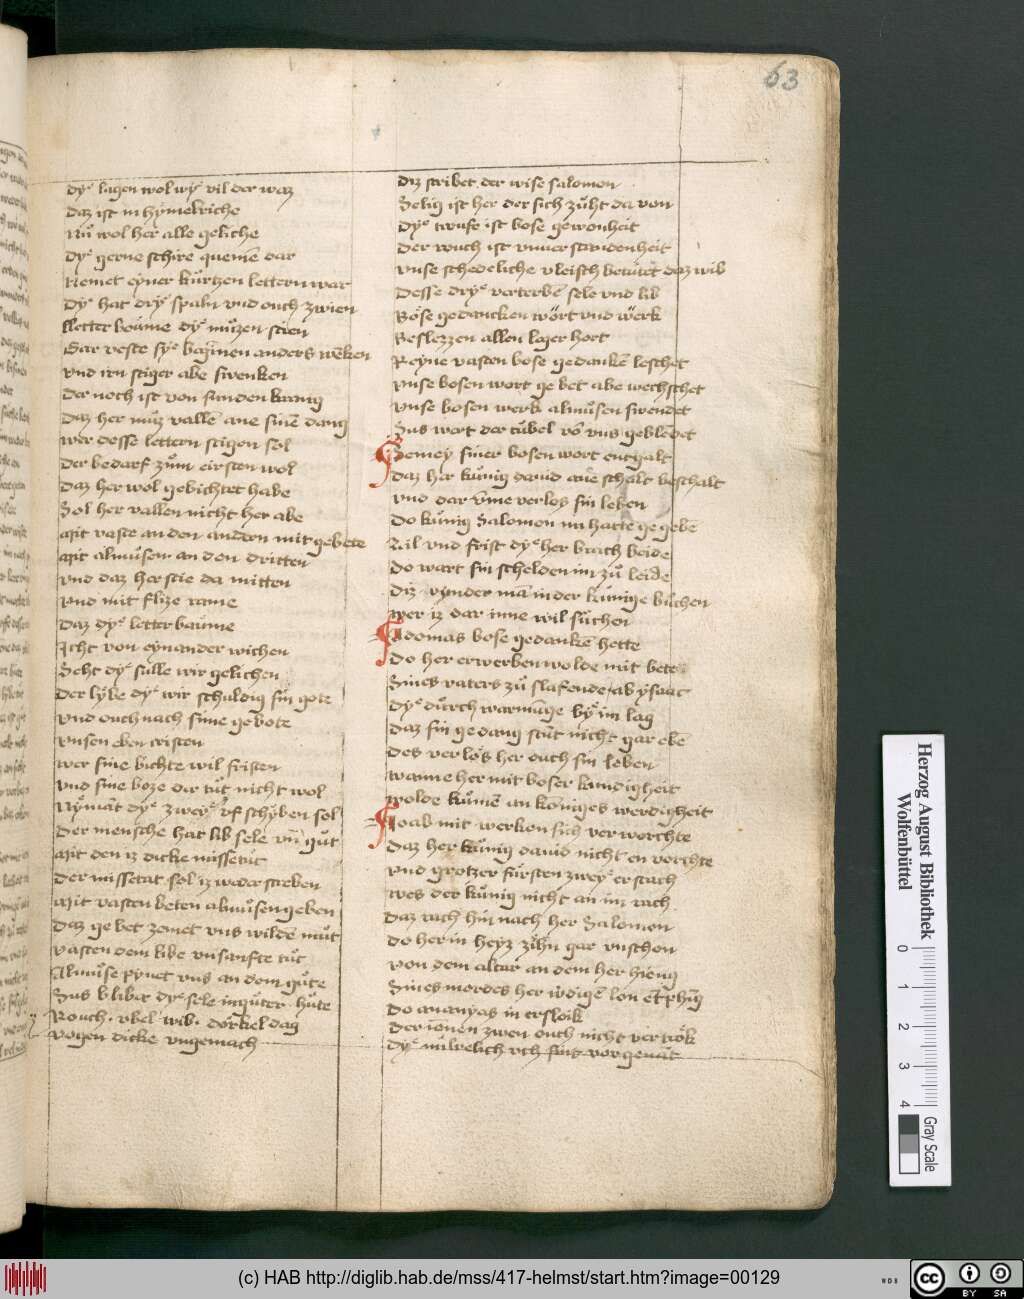 63
dyͤ lagen wol wyͤ vil der waz
daz ist in hymelriche
Nuͦ wol her alle geliche
dyͤ gerne schire quemē dar
Nemet eyner kurtzen lettern war
dyͤ hat dryͤ spaln vnd ouch zwien
lletter boume dyͤ muͦzen sten
Gar veste syͤ anders wēken
vnd irn stiger abe swenken
Der noch ist von sunden krang
Daz her muͦz vallē ane sinē dang
wer desse lettern stigen sol
Der bedarf zuͦm eirsten wol
Daz her wol gebichtet habe
Sol her vallen nicht her abe
Mit vaste an den andern mit gebete
Mit almuͦsen an den dritten
vnd daz her stie da mitten
vnd mit flize rame
Daz dyͤ letter baume
Icht von eynander wichen
Seht dyͤ sulle wir gelichen
Der lybe dyͤ wir schuldig sin gote
vnd ouch nach sime gebote
vnsen eben cristen
wer sine bichte wil fristen
vnd sine boze dar tuͦt nicht wol
dyͤ zweyͤ vf schyben sol
Der mensche hat lib sele vn̄ guͦt
Mit den iz dicke misserit
Der missetat sol iz weder streben
Mit vasten beten almuͦsen geben
Daz gebet zemet vns wilden muͦt
vasten dem libe vnsanfte tuͦt
Almuͦse pynet vns an dem guͦte
Sus blibet dyͤ sele in guͦter huͦte
Rouch · vbel wib · dorkel dag
vogen dicke vngemach
Diz scribet der wise salomon
Selig ist her der sich zuͦht da von
Dyͤ truͦfe ist bose gewonheit
Der rouch ist vnuerstandenheit
vnse schedeliche vleisch betutet daz wib
Desse dryͤ verterbē sele vnd lib
Bose gedancken wort vnd werk
Beslezzen allen lager hort
Reyne vasten bose gedankē leschet
vnse bosen wort gebet abe weschet
vnse bosen werk almuͦsen swendet
Sus wert der tubel vō vns geblēdet
Semey siner bosen wort entgalt
Daz her kuͦnig dauid ane schalt beschalt
vnd dar vm̄e verlos sin leben
Do kuͦnig Salomon im hatte gegebē
Zil vnd frist dyͤ her brach beide
Do wart sin schelden im zuͦ leide
Diz vynder man in der kunige buͦchen
wer iz dar inne wil suͦchen
Adomas bose gedankē hette
Do her erwerben wolde mit bete
Sines vaters zuͦ slafende abysaac
dyͤ durch warmūge byͤ im lag
daz sin gedang stuͦt nicht gar ebē
des verlos her ouch sin leben
wanne her mit boser kundigheit
wolde kuͦmē an koniges werdigheit
Ioab mit werken sich verworchte
daz her kuͦnig dauid nicht en vorchte
vnd grotzer fursten zweyͤ erstach
wes der kuͦnig nicht an im rach
Daz rach hin nach her Salomon
Do her in heyz zihn gar vnschon
von dem altar an dem her hieng
Sines mordes her lon
Do ananyas in ersloik
Der ienen zwen ouch nicht vertrok
dyͤ
(c) HAB http://diglib.hab.de/mss/417-helmst/start.htm?image=00129
Herzog August Bibliothek
Wolfenbüttel
0
1
2
3
4
Gray Scale
WDB
cc
BY
SA